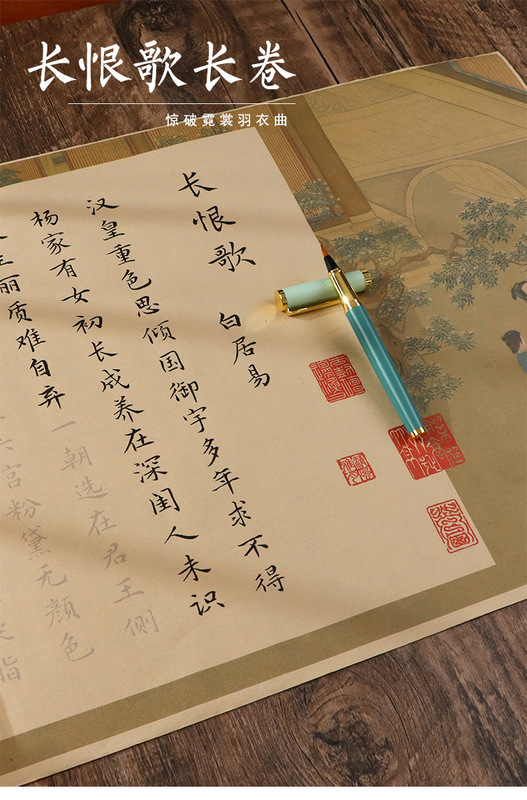 长恨歌长卷
惊破霓裳羽衣曲
长恨歌 白居易
汉皇重色思倾国御宇多年求不得
杨家有女初长成养在深闺人未识
生丽质难自弃一朝选在君王侧
宫粉黛无颜色
脂